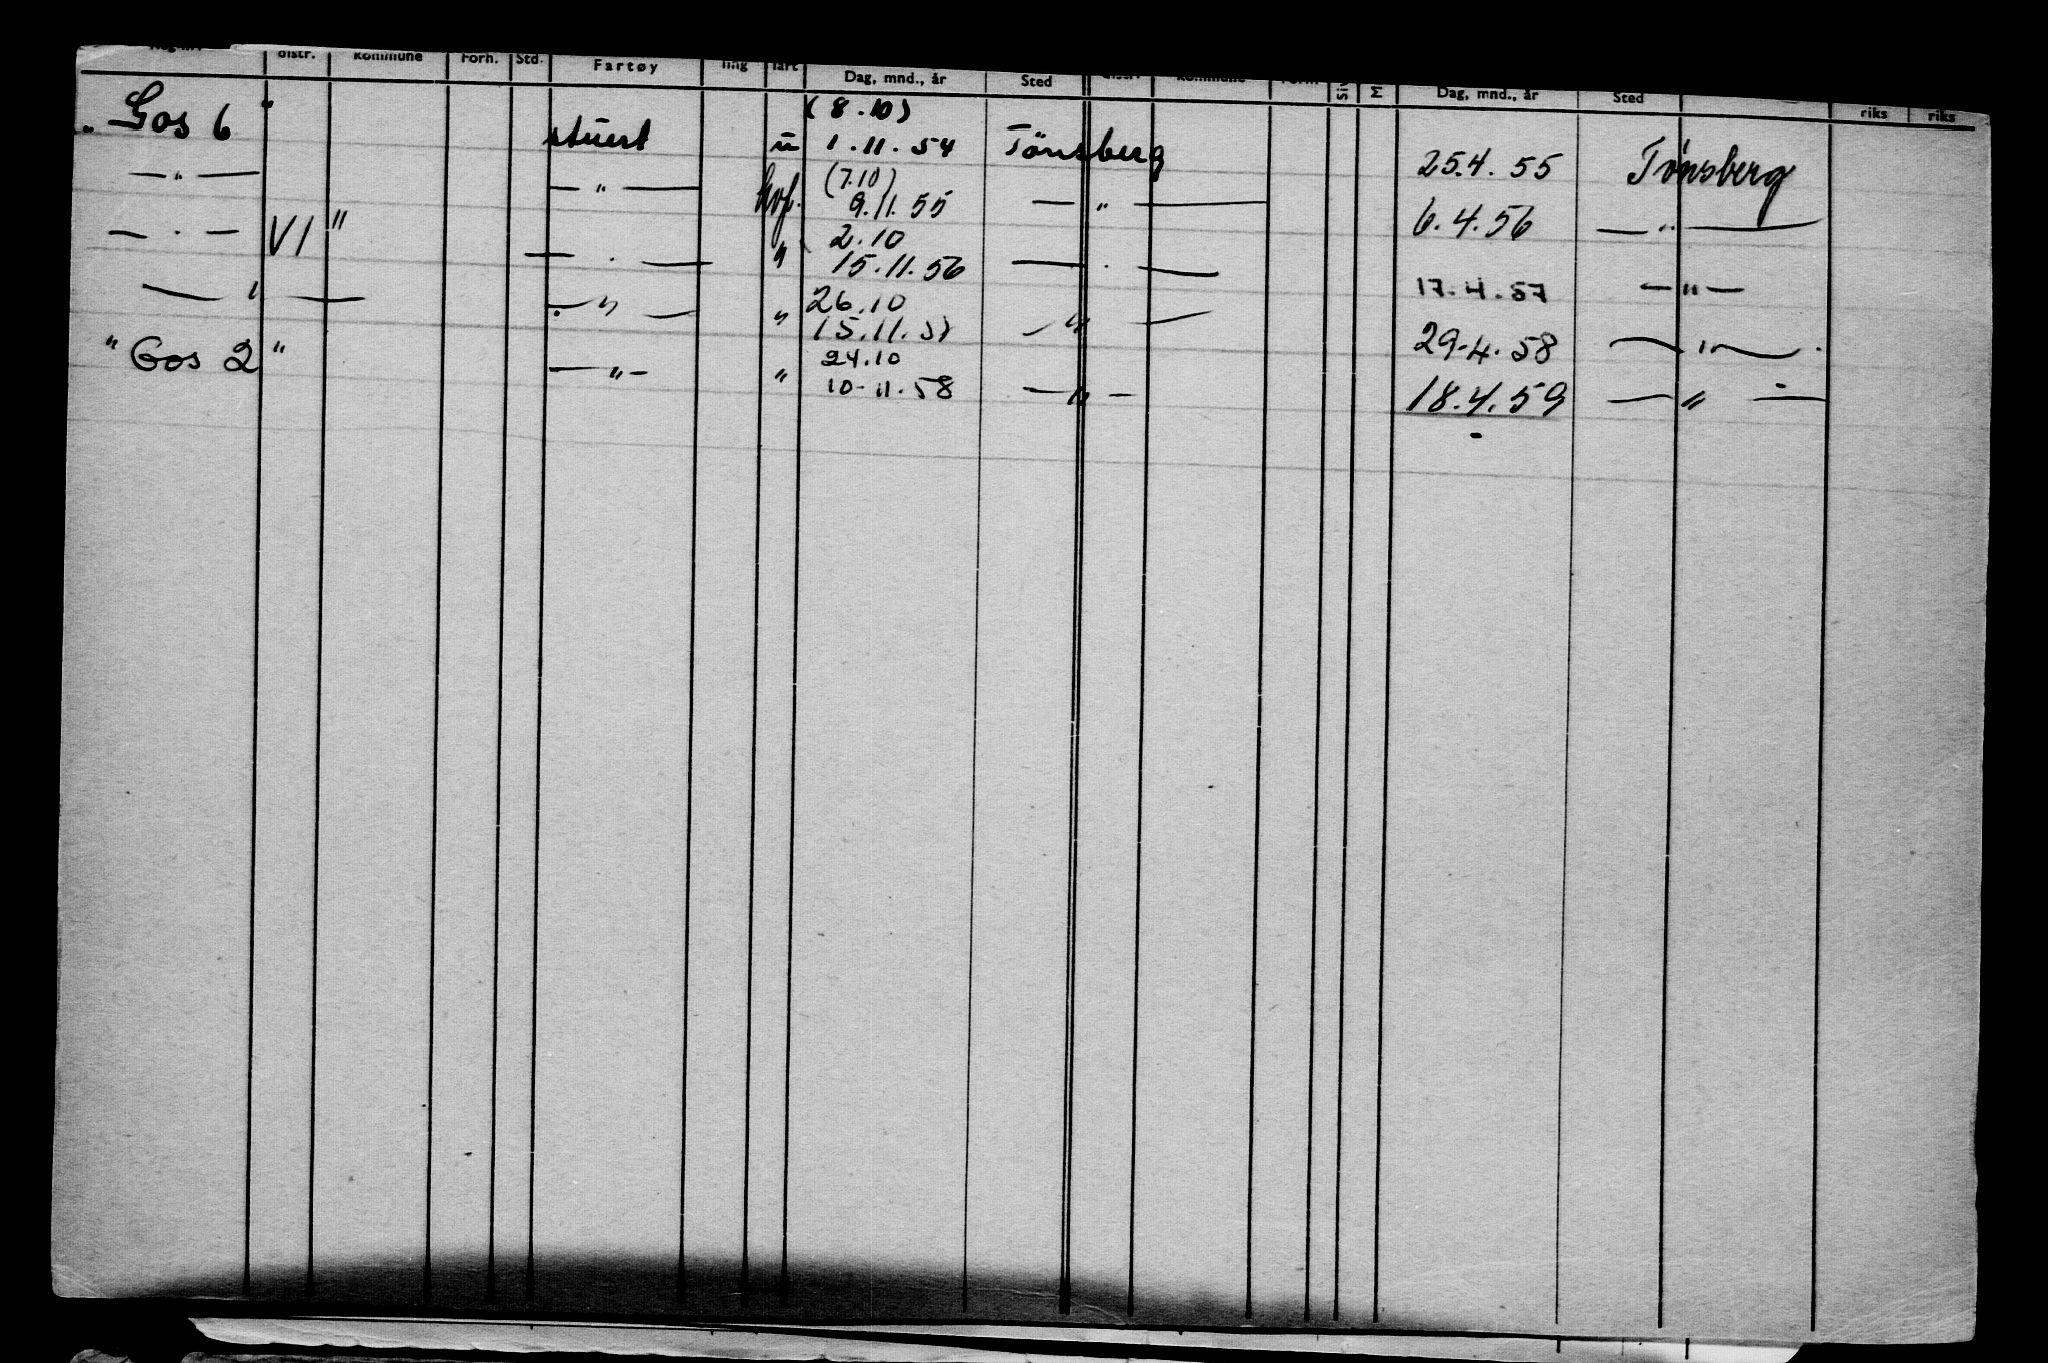 distr. kommune Forh. Std. Fartøy fart Dag, mnd., år Sted kommune Dag, mnd., år Sted riks riks
(8.10)
„ Gos 6 " stuert u 1.11.54 Tönsberg 25.4.55 Tønsberg
(7.10)
— " — — " — hvf. 9.11.55 — " — 6.4.56 — " —
2.10
— " — VI " — " — " 15.11.56 — " — 17.4.57 — " —
26.10
— " — — " — " 15.11.57 — " — 29.4.58 — " —
24.10
" Gos 2 " — " — " 10-11.58 — " — 18.4.59 — " —